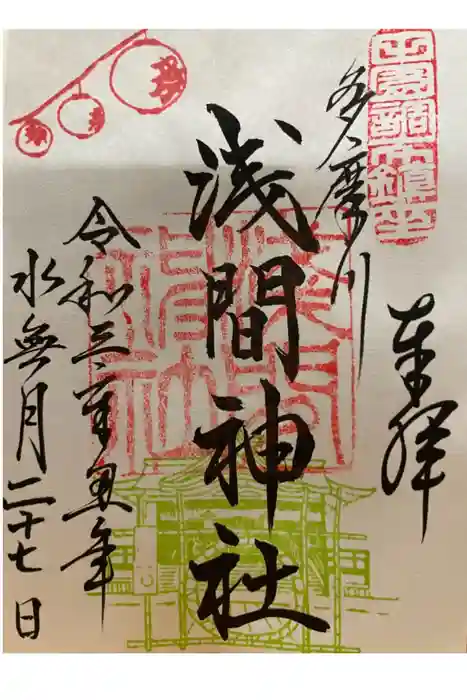 田園調布鎮座
奉拝
多摩川
浅間神社
令和三年丑年
水無月二十七日